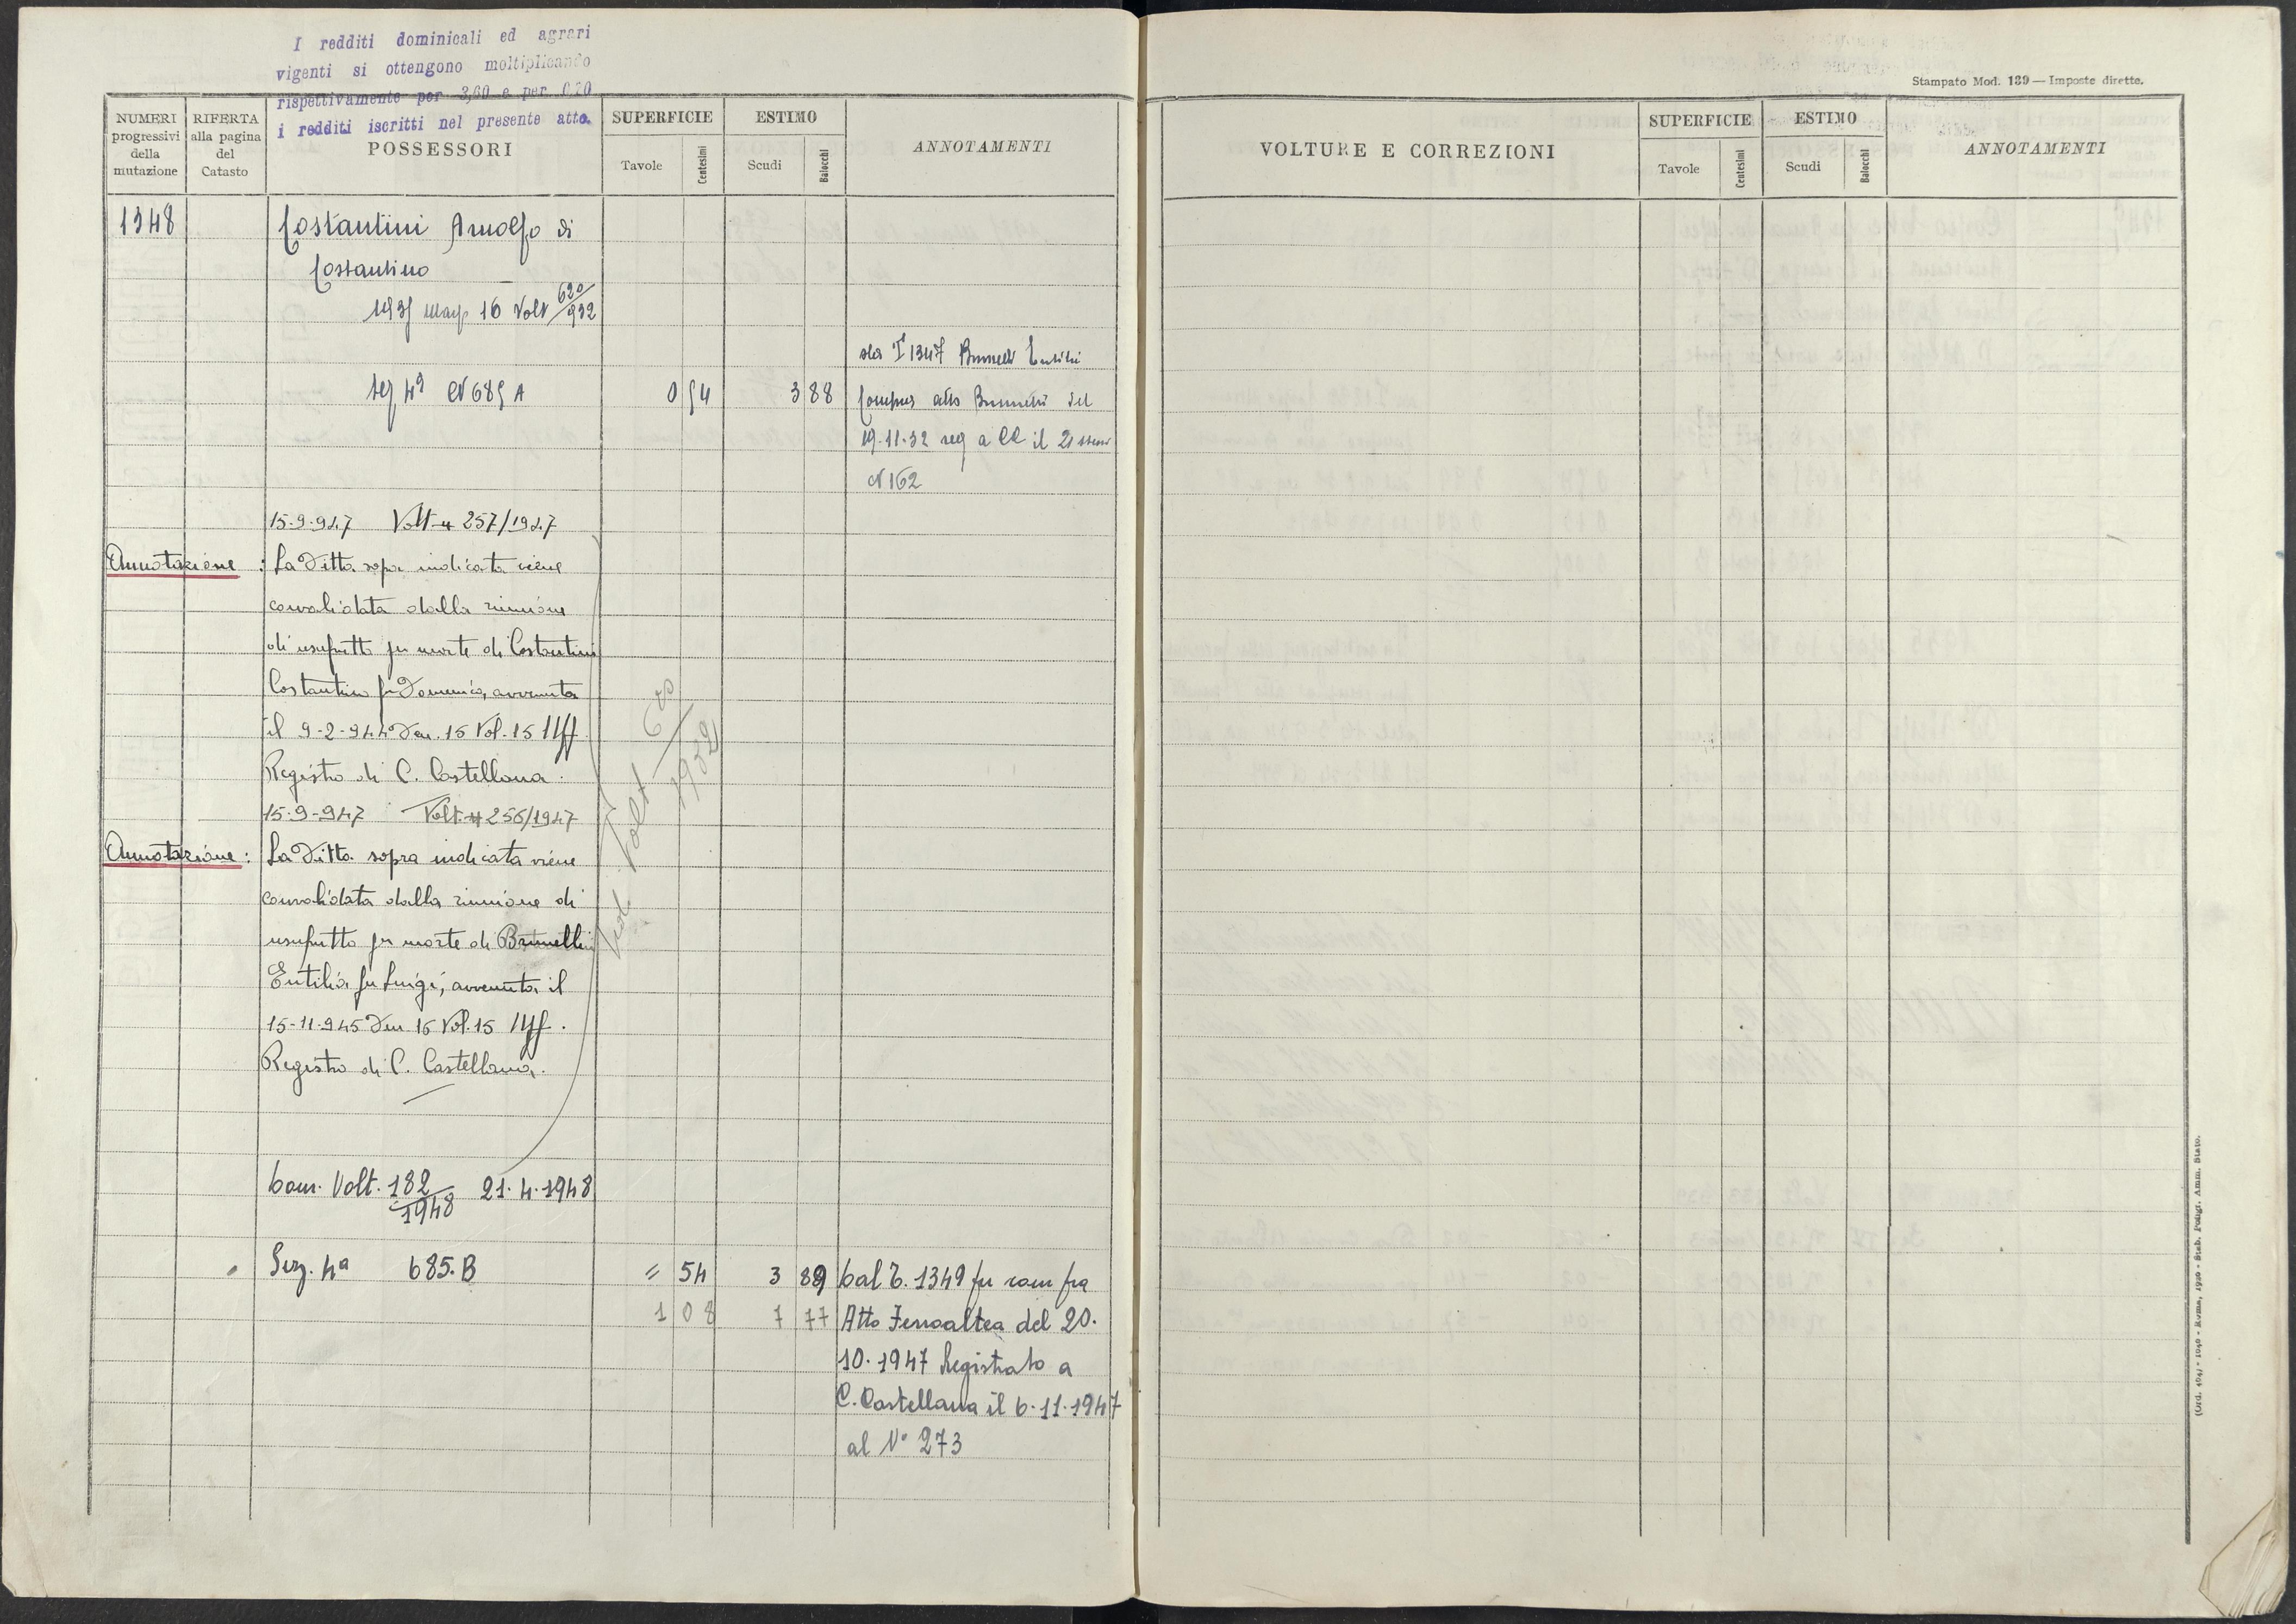 I redditi dominicali ed agrari
vigenti si ottengono moltiplicando
rispettivamente per 3,60 e per 0,20
i redditi iscritti nel presente atto.
Stampato Mod. 139 — Imposte dirette.
NUMERI progressivi della mutazione
RIFERTA alla pagina del Catasto
POSSESSORI
SUPERFICIE
Tavole
Centesimi
ESTIMO
Scudi
Baiocchi
ANNOTAMENTI
VOLTURE E CORREZIONI
SUPERFICIE
Tavole
Centesimi
ESTIMO
Scudi
Baiocchi
ANNOTAMENTI
1348
Costantini Arnolfo di
Costantino
Magg 16 Volt 620/932
dal T 1347 Brunelli
4ª N 685 A 0 54 3 88 Compra atto del
19-11-32 reg a CC il 21
N 162
15-9-947 Volt 257/1947
Annotazione : La Ditta sopra indicata viene
convalidata dalla riunione
di usufrutto per morte di Costantini
Costantino fu Domenico, avvenuta
il 9-2-944 Den. 15 Vol. 15 Uff.
Registro di C. Castellana.
15-9-947 Volt. 256/1947
Annotazione : La Ditta sopra indicata viene
convalidata dalla riunione di
usufrutto per morte di Brunelli
Entilia fu Luigi, avvenuta il
15-11-945 Den 16 Vol. 15 Uff.
Registro di C. Castellana.
Volt 620/1932
Volt. 182/1948 21.4.1948
Sez. 4ª 685.B = 54 3 89 Dal T. 1349 per
1 08 7 77 Atto Ferroaltea del 20.
10.1947 Registrato a
C. Castellana il 6.11.1947
al N° 273